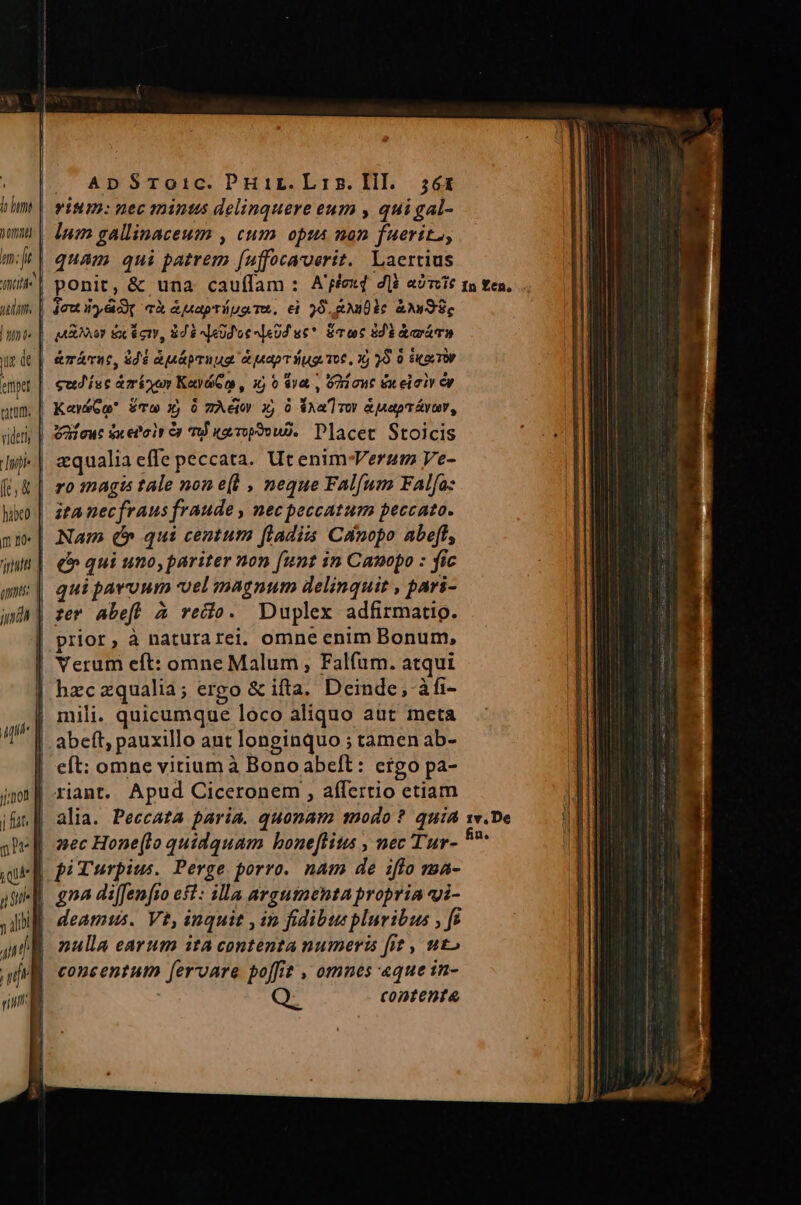 AD STOIC. PHIL. LIB. III. 361
rium: nec minus delinquere eum, qui gal-
lum gallinaceum, cum opus non fuerit,
quam qui patrem suffocaverit. Laertius
ponit, & una caussam: Ἀρέσκει δὲ αὐτοῖς In Zen.
ἴσα ἡγεῖσθαι τὰ ἁμαρτήματα. εἰ γὸ ἀληθὲς ἀληθοῦς
μᾶλλον οὐκ ἔστιν, οὐδὲ ψεῦδος ψεύδους· οὕτως οὐδὲ ἀπάτη
ἀπάτης, οὐδὲ ἁμάρτημα ἁμαρτήματος, καὶ γὸ ὁ ἑκατὸν
σταδίους ἀπέχων Κανώβου, καὶ ὁ ἕνα, ἐπίσης οὐκ εἰσὶν ἐν
Κανώβῳ· οὕτω καὶ ὁ πλεῖον καὶ ὁ ἔλαττον ἁμαρτάνων,
ἐπίσης οὐκ εἰσὶν ἐν τῷ κατορθοῦν. Placet Stoicis
æqualia esse peccata. Ut enim Verum Ve-
ro magis tale non est, neque Falsum Falso:
ita nec fraus fraude, nec peccatum peccato.
Nam & qui centum stadiis Canopo abest,
& qui uno, pariter non sunt in Canopo: sic
qui parvum vel magnum delinquit, pari-
ter abest à recto. Duplex adfirmatio.
prior, à natura rei. omne enim Bonum,
Verum est: omne Malum, Falsum. atqui
hæc æqualia; ergo & ista. Deinde, à si-
mili. quicumque loco aliquo aut meta
abest, pauxillo aut longinquo; tamen ab-
est: omne vitium à Bono abest: ergo pa-
riant. Apud Ciceronem, assertio etiam
alia. Peccata paria. quonam modo? quia IV. De
nec Honesto quidquam honestius, nec Tur- fin.
pi Turpius. Perge porro. nam de isto ma-
gna dissensio est: illa argumenta propria vi-
deamus. Vt, inquit, in fidibus pluribus, si
nulla earum ita contenta numeris sit, ut
concentum servare possit, omnes æque in-
Q contentæ